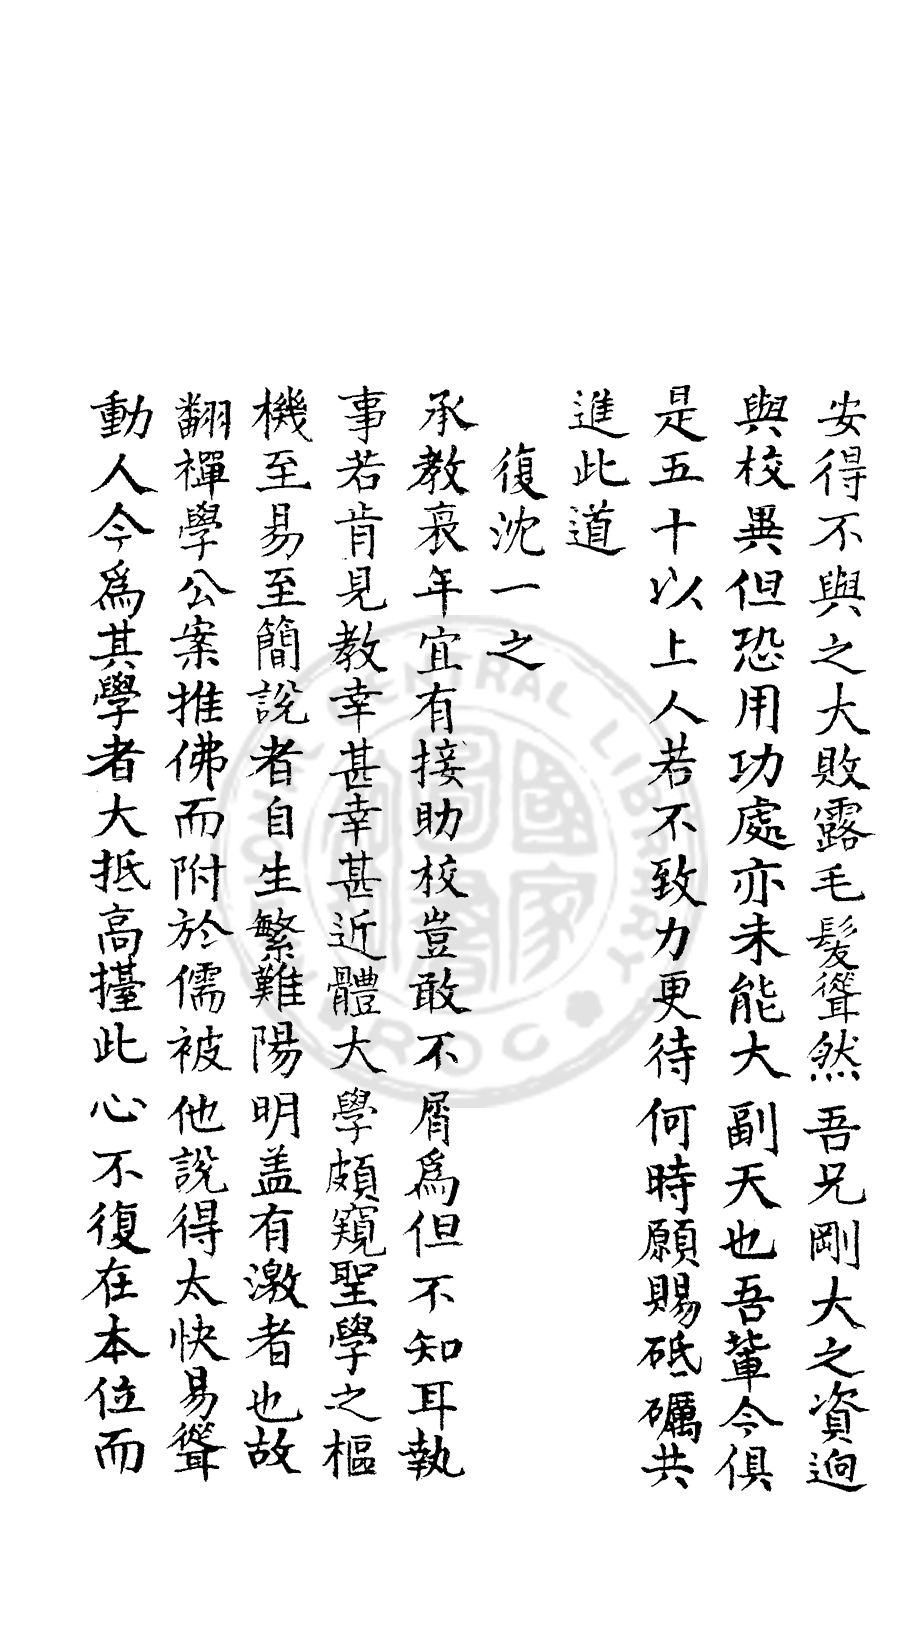 安得不與之大敗露毛髮聳然吾兄剛大之資逈
與校異但恐用功處亦未能大副天也吾輩今俱
是五十以上人若不致力更待何時願賜砥礪共
進此道
復沈一之
承教衰年宜有接助校豈敢不屑爲但不知耳執
事若肯見教幸甚幸甚近體大學頗窺聖學之樞
機至易至簡說者自生繁難陽明盖有激者也故
翻禪學公案推佛而附於儒被他說得太快易聳
動人今爲其學者大抵高擡此心不復在本位而
NATIONAL CENTRAL LIBRARY
R.O.C
國家圖書館